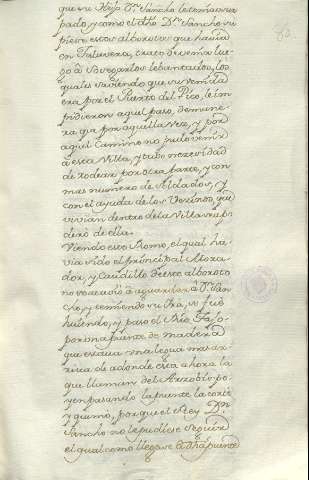 que su Hijo Dn. Sancho le tenia usur
pado, y como el dho Dn. Sancho su
piese estos alborotos que havia
en Talavera, trato de venir lue
go à sosegarlos lebantados, los
quales saviendo que su venida
era por el Puerto del Pico, le im
pidieron aquel paso, de mane
ra que por aquella vez, y por
aquel Camino no pudo venir
à esta Villa, y tubo necesidad
de rodear por otra parte, y con
mas numero de soldados, y
con el ayuda de los Vecinos, que
vivian dentro de la Villa se apo
deró de ella.
Viendo esto Romo, el qual ha
via sido el principal Move
dor, y Caudillo de este alboroto
no se atrevió à aguardar à Dn. San
cho, y temiendo su Ira, se fue
huiendo, y paso el Rio Tajo
por una puente de madera
que estava una legua mas ar
riva de adonde esta ahora la
que llaman del Arzobispo, y
en pasando la puente la cortó
y quemó, porque el Rey Dn.
Sancho no le pudiese seguir
el qual como llegase à dha puente